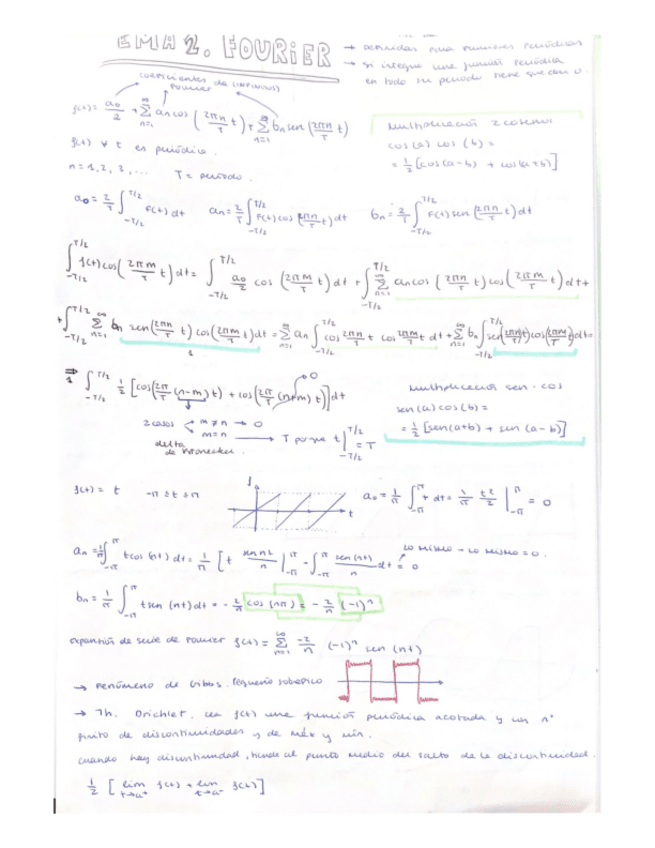 EMA 2. FOURIER
→ definidas para funciones periódicas
→ si integro una función periódica
en todo su periodo tiene que dar 0.
coeficientes de (INFINITOS)
Fourier
f(t) = a₀/2 + Σ_{n=1}^{∞} aₙ cos (2πn/T t) + Σ_{n=1}^{∞} bₙ sen (2πn/T t)
Multiplicación 2 cosenos
cos (a) cos (b) =
= 1/2 [cos(a-b) + cos(a+b)]
f(t) ∀ t es periódica.
n = 1, 2, 3, ... T = periodo.
a₀ = 2/T ∫_{-T/2}^{T/2} f(t) dt aₙ = 2/T ∫_{-T/2}^{T/2} f(t) cos (2πn/T t) dt bₙ = 2/T ∫_{-T/2}^{T/2} f(t) sen (2πn/T t) dt
∫_{-T/2}^{T/2} f(t) cos (2πm/T t) dt = ∫_{-T/2}^{T/2} a₀/2 cos (2πm/T t) dt + ∫_{-T/2}^{T/2} Σ_{n=1}^{∞} aₙ cos (2πn/T t) cos (2πm/T t) dt +
+ ∫_{-T/2}^{T/2} Σ_{n=1}^{∞} bₙ sen (2πn/T t) cos (2πm/T t) dt = Σ_{n=1}^{∞} aₙ ∫_{-T/2}^{T/2} cos 2πn/T t cos 2πm/T t dt + Σ_{n=1}^{∞} bₙ ∫_{-T/2}^{T/2} sen (2πn/T t) cos (2πm/T t) dt =
1
⇒ 1 ∫_{-T/2}^{T/2} 1/2 [cos (2π/T (n-m) t) + cos (2π/T (n+m) t)] dt → 0
Multiplicación sen · cos
sen (a) cos (b) =
= 1/2 [sen(a+b) + sen (a-b)]
2 casos < m ≠ n → 0
m = n → T porque t |_{-T/2}^{T/2} = T
delta
de Kronecker.
f(t) = t -π ≤ t ≤ π
f
t
a₀ = 1/π ∫_{-π}^{π} t dt = 1/π t²/2 |_{-π}^{π} = 0
aₙ = 1/π ∫_{-π}^{π} t cos (nt) dt = 1/π [t sen nt/n |_{-π}^{π} - ∫_{-π}^{π} sen (nt)/n dt = 0
lo mismo - lo mismo = 0.
bₙ = 1/π ∫_{-π}^{π} t sen (nt) dt = - 2/n cos (nπ) = - 2/n (-1)ⁿ
expansión de serie de Fourier f(t) = Σ_{n=1}^{∞} -2/n (-1)ⁿ sen (nt)
→ Fenómeno de Gibbs. Pequeño sobrepico
→ Th. Dirichlet. Sea f(t) una función periódica acotada y un nº
finito de discontinuidades y de máx y mín.
cuando hay discontinuidad, tiende al punto medio del salto de la discontinuidad.
1/2 [lim_{t→a⁺} f(t) + lim_{t→a⁻} f(t)]